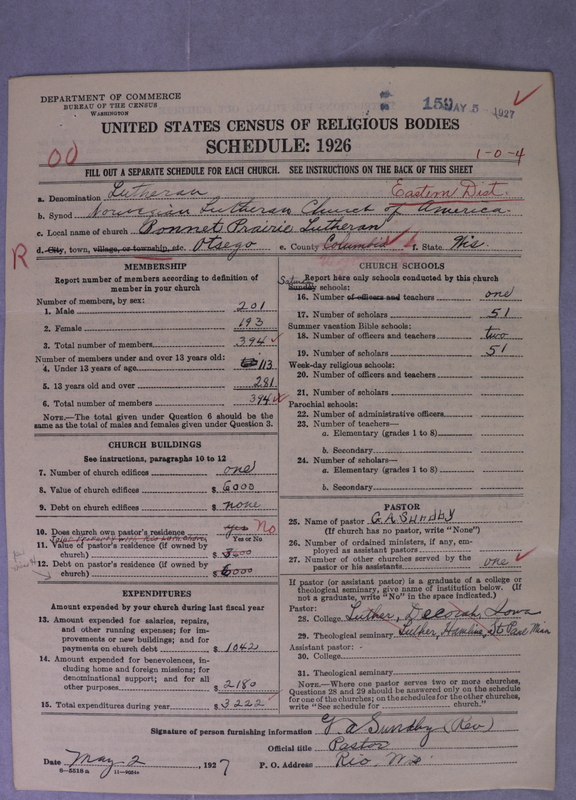 DEPARTMENT OF COMMERCE
BUREAU OF THE CENSUS
WASHINGTON
159 MAY 5 1927
UNITED STATES CENSUS OF RELIGIOUS BODIES
SCHEDULE: 1926
1-0-4
FILL OUT A SEPARATE SCHEDULE FOR EACH CHURCH. SEE INSTRUCTIONS ON THE BACK OF THIS SHEET
a. Denomination Lutheran Eastern Dist.
b. Synod Norwegian Lutheran Church of America
c. Local name of church Bonnet Prairie Lutheran
d. City, town, village, or township, etc. Otsego e. County Columbia f. State Wis.
R
MEMBERSHIP
Report number of members according to definition of member in your church
Number of members, by sex:
1. Male 201
2. Female 193
3. Total number of members 394
Number of members under and over 13 years old:
4. Under 13 years of age 113
5. 13 years old and over 281
6. Total number of members 394
NOTE.—The total given under Question 6 should be the
same as the total of males and females given under Question 3.
CHURCH BUILDINGS
See instructions, paragraphs 10 to 12
7. Number of church edifices one
8. Value of church edifices $ 6000
9. Debt on church edifices $ none
10. Does church own pastor's residence yes No
Yes or No
11. Value of pastor's residence (if owned by
church) $
12. Debt on pastor's residence (if owned by
church) $
EXPENDITURES
Amount expended by your church during last fiscal year
13. Amount expended for salaries, repairs,
and other running expenses; for im-
provements or new buildings; and for
payments on church debt $ 1042
14. Amount expended for benevolences, in-
cluding home and foreign missions; for
denominational support; and for all
other purposes $ 2180
15. Total expenditures during year $ 3222
CHURCH SCHOOLS
Report here only schools conducted by this church
Saturday
Sunday schools:
16. Number of officers and teachers one
17. Number of scholars 51
Summer vacation Bible schools:
18. Number of officers and teachers two
19. Number of scholars 51
Week-day religious schools:
20. Number of officers and teachers
21. Number of scholars
Parochial schools:
22. Number of administrative officers
23. Number of teachers—
a. Elementary (grades 1 to 8)
b. Secondary
24. Number of scholars—
a. Elementary (grades 1 to 8)
b. Secondary
PASTOR
25. Name of pastor G. A. Sundby
(If church has no pastor, write "None")
26. Number of ordained ministers, if any, em-
ployed as assistant pastors
27. Number of other churches served by the
pastor or his assistants one
If pastor (or assistant pastor) is a graduate of a college or
theological seminary, give name of institution below. (If
not a graduate, write "No" in the space indicated.)
Pastor:
28. College Luther, Decorah, Iowa
29. Theological seminary Luther, Hamline, St Paul Minn
Assistant pastor:
30. College
31. Theological seminary
NOTE.—Where one pastor serves two or more churches,
Questions 28 and 29 should be answered only on the schedule
for one of the churches; on the schedules for the other churches,
write "See schedule for church."
Signature of person furnishing information G A Sundby (Rev)
Official title Pastor
Date May 2, 1927 P. O. Address Rio, Wis
8-5518a